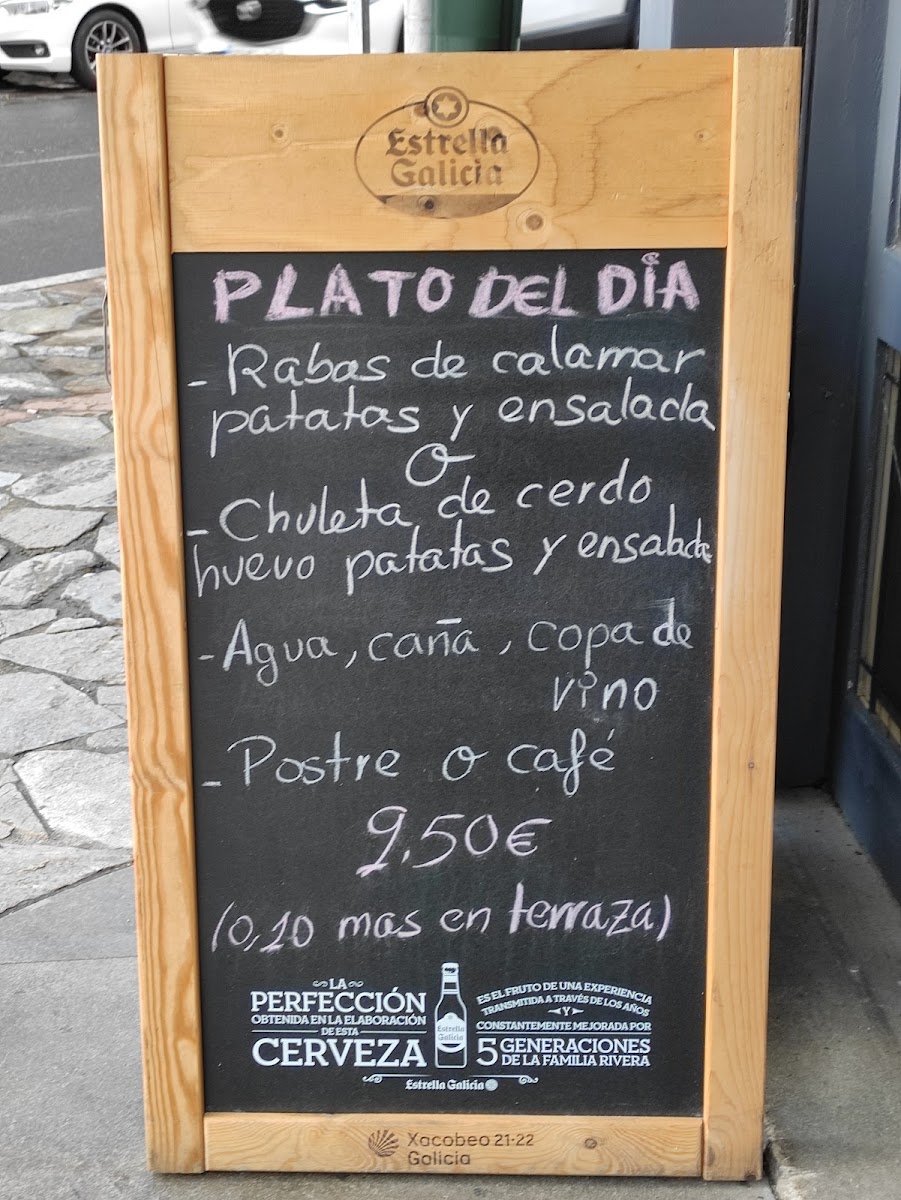 Estrella
Galicia
PLATO DEL DIA
- Rabas de calamar
patatas y ensalada
O
- Chuleta de cerdo
huevo patatas y ensalada
- Agua, caña, copa de
vino
- Postre o café
9.50€
(0,10 mas en terraza)
LA
PERFECCIÓN
OBTENIDA EN LA ELABORACIÓN
DE ESTA
CERVEZA
Estrella
Galicia
ES EL FRUTO DE UNA EXPERIENCIA
TRANSMITIDA A TRAVÉS DE LOS AÑOS
Y
CONSTANTEMENTE MEJORADA POR
5 GENERACIONES
DE LA FAMILIA RIVERA
Estrella Galicia
Xacobeo 21·22
Galicia